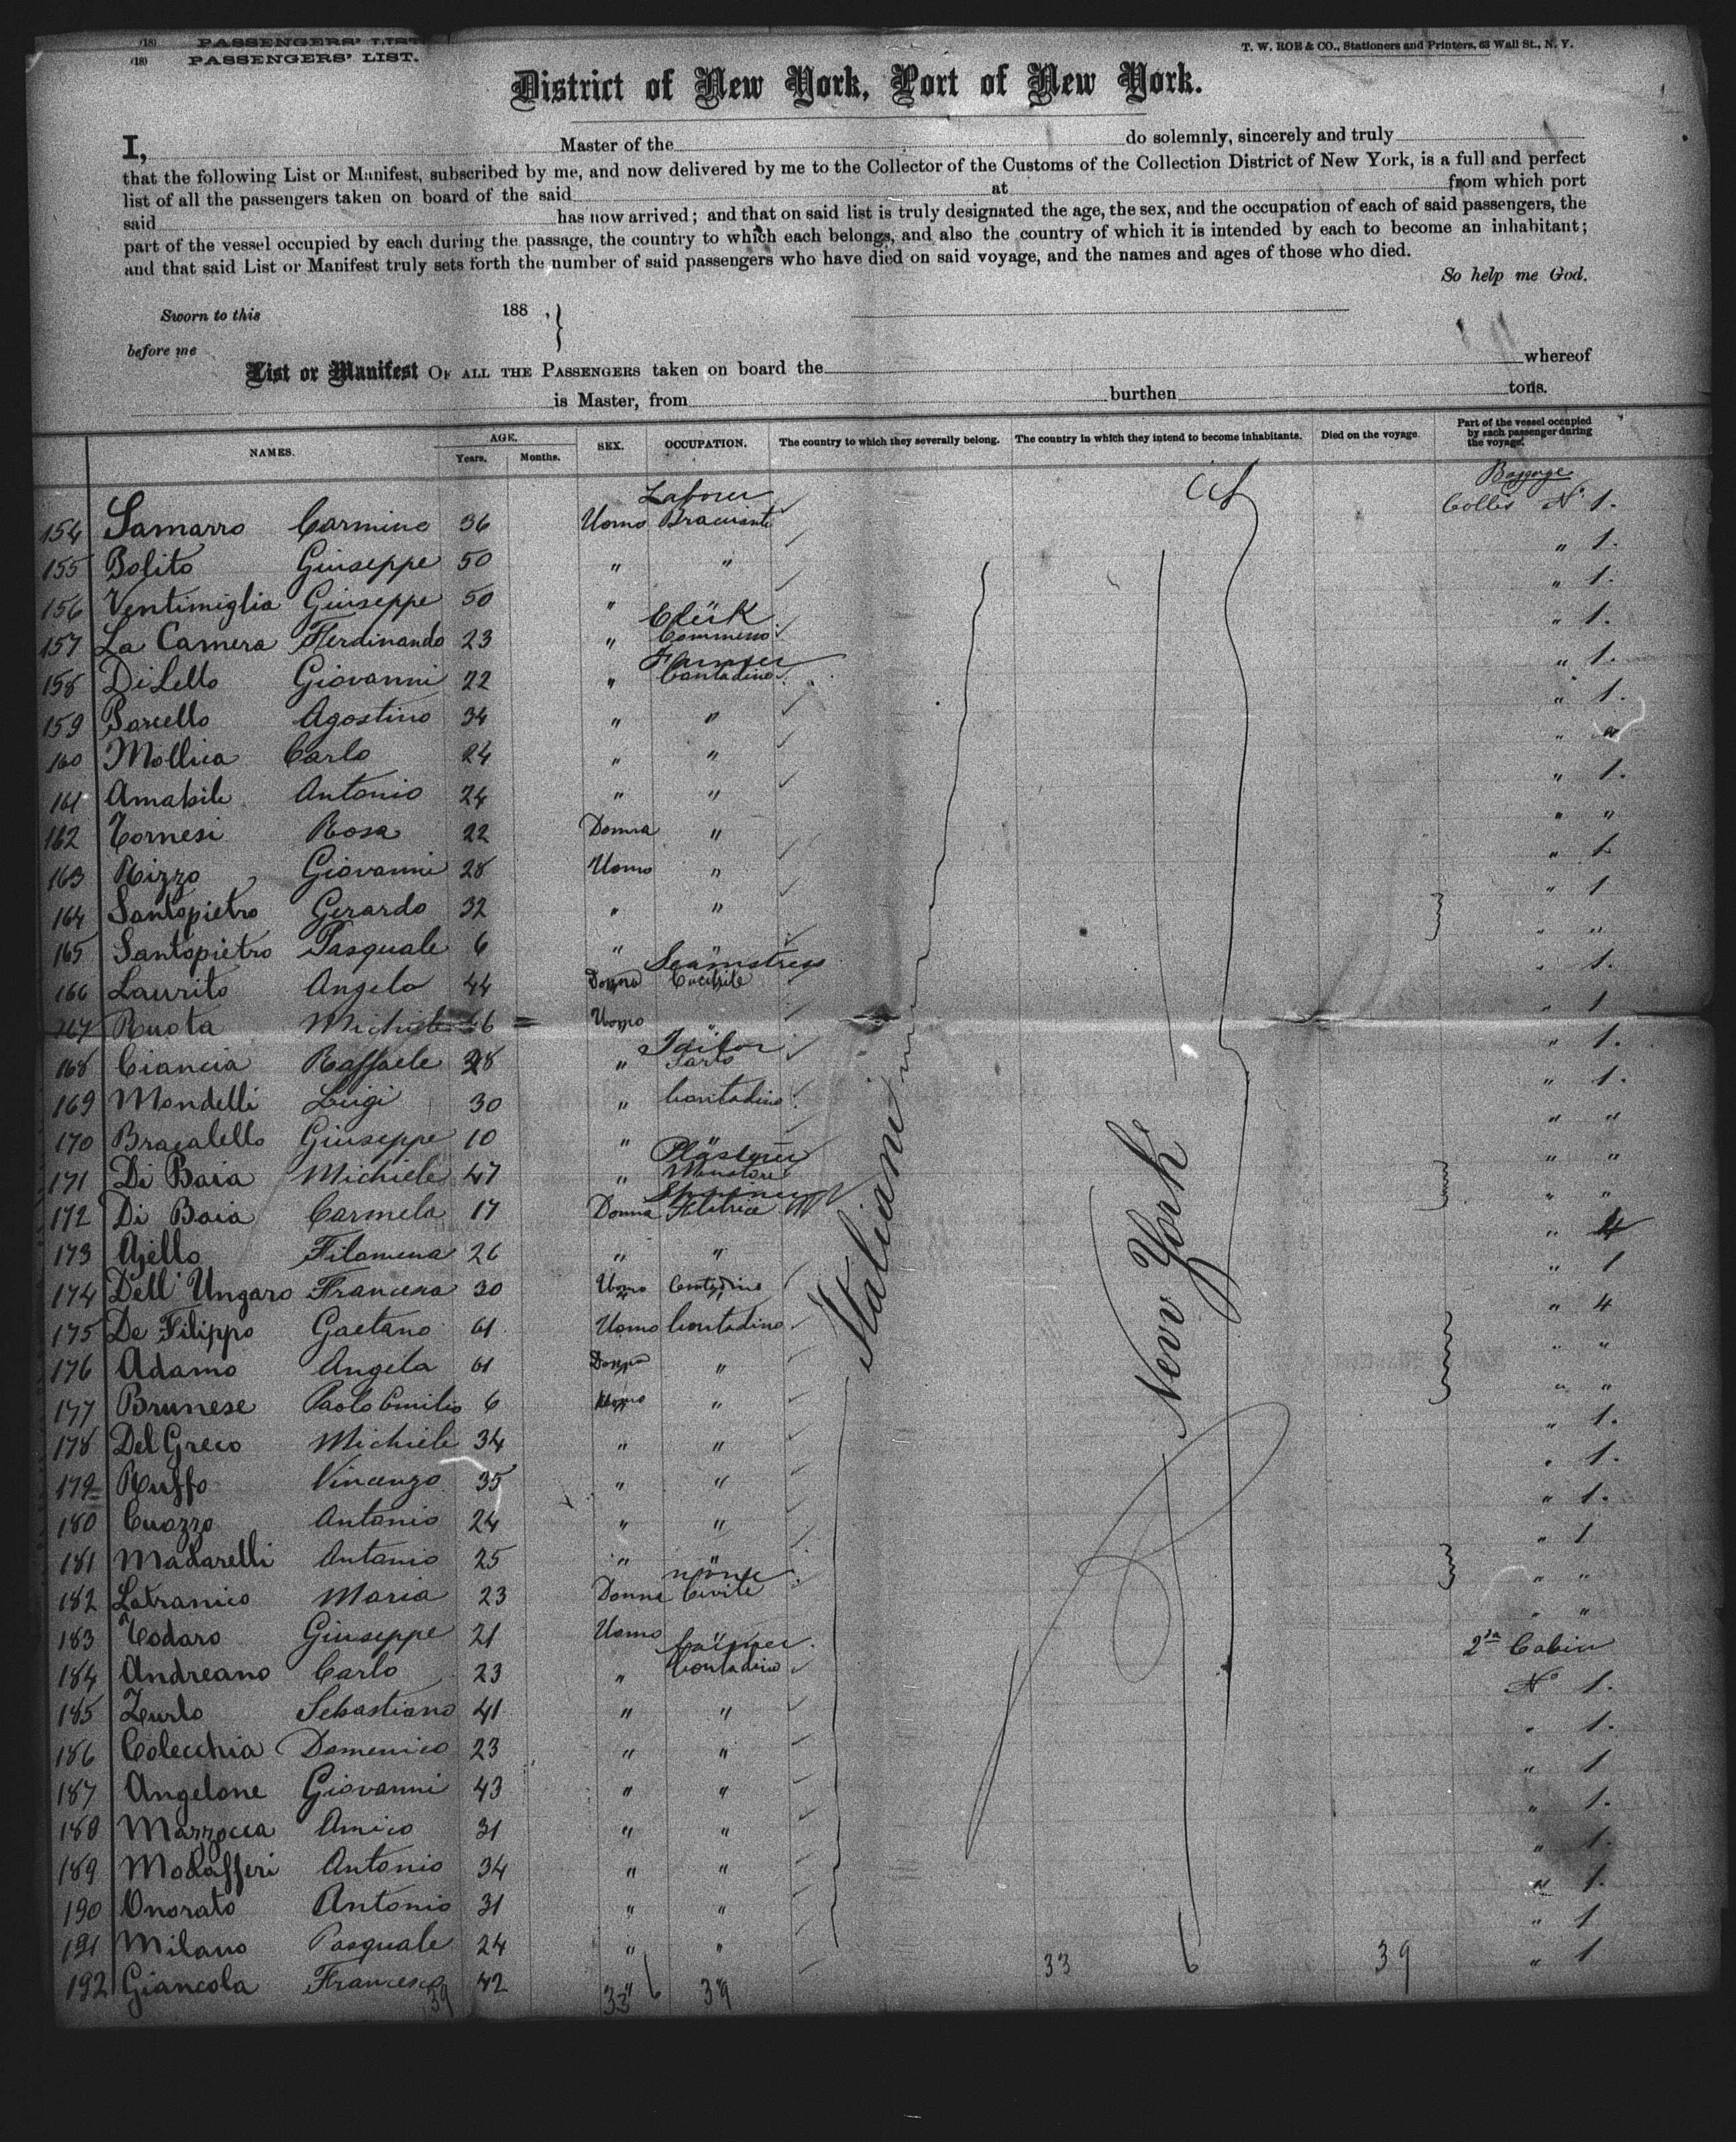 (18) PASSENGERS' LIST.
(18) PASSENGERS' LIST.
T. W. ROE & CO., Stationers and Printers, 63 Wall St., N. Y.
District of New York, Port of New York.
I, Master of the do solemnly, sincerely and truly
that the following List or Manifest, subscribed by me, and now delivered by me to the Collector of the Customs of the Collection District of New York, is a full and perfect
list of all the passengers taken on board of the said at from which port
said has now arrived; and that on said list is truly designated the age, the sex, and the occupation of each of said passengers, the
part of the vessel occupied by each during the passage, the country to which each belongs, and also the country of which it is intended by each to become an inhabitant;
and that said List or Manifest truly sets forth the number of said passengers who have died on said voyage, and the names and ages of those who died.
So help me God.
Sworn to this 188 ,
before me
List or Manifest OF ALL THE PASSENGERS taken on board the whereof
is Master, from burthen tons.
NAMES. AGE. Years. Months. SEX. OCCUPATION. The country to which they severally belong. The country in which they intend to become inhabitants. Died on the voyage. Part of the vessel occupied by each passenger during the voyage.
Baggage
Labourer
154 Samarro Carmine 36 Uomo Bracciante Colles N° 1.
155 Bolito Giuseppe 50 " " " 1.
156 Ventimiglia Giuseppe 50 " " 1.
Clerk
157 La Camera Ferdinando 23 " Commesso " 1.
Farmer
158 DiLello Giovanni 22 " Contadino " 1.
159 Porcello Agostino 34 " " " 1.
160 Mollica Carlo 24 " " " "
161 Amabile Antonio 24 " " " 1.
162 Tornesi Rosa 22 Donna " " "
163 Rizzo Giovanni 28 Uomo " " 1.
164 Santopietro Gerardo 32 " " " 1
165 Santopietro Pasquale 6 " " "
Seamstress
166 Laurito Angela 44 Donna Cucitrice " 1.
167 Ruota Michiele 46 Uomo " 1
Tailor
168 Ciancia Raffaele 28 " Sarto " 1.
169 Mondelli Luigi 30 " Contadino " 1.
170 Bracalello Giuseppe 10 " " " "
Plasterer
171 Di Baia Michiele 47 " " "
Spinner
172 Di Baia Carmela 17 Donna Filatrice " "
173 Ajello Filomena 26 " " " 4
174 Dell' Ungaro Francesco 30 Uomo Contadino " 1
175 De Filippo Gaetano 61 Uomo Contadino " 4
176 Adamo Angela 61 Donna " " "
177 Brunese Paolo Emilio 6 Uomo " " "
178 Del Greco Michiele 34 " " " 1.
179 Ruffo Vincenzo 35 " " " 1.
180 Cuozzo Antonio 24 " " " 1.
181 Madarelli Antonio 25 " " " 1
none
182 Latranico Maria 23 Donna Civile " "
183 Todaro Giuseppe 21 Uomo " "
farmer 2da Cabin
184 Andreano Carlo 23 " Contadino N° 1.
185 Zurlo Sebastiano 41 " " " 1.
186 Colecchia Domenico 23 " " " 1
187 Angelone Giovanni 43 " " " 1.
188 Mazzocca Amico 31 " " " 1.
189 Modafferi Antonio 34 " " " 1.
190 Onorato Antonio 31 " " " 1
191 Milano Pasquale 24 " " " 1
192 Giancola Francesco 42 "
Italiani
New York
39 33 6 39 33 6 39